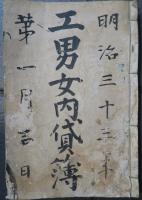 明治三十三年
工男女内貸簿
第一月吉日